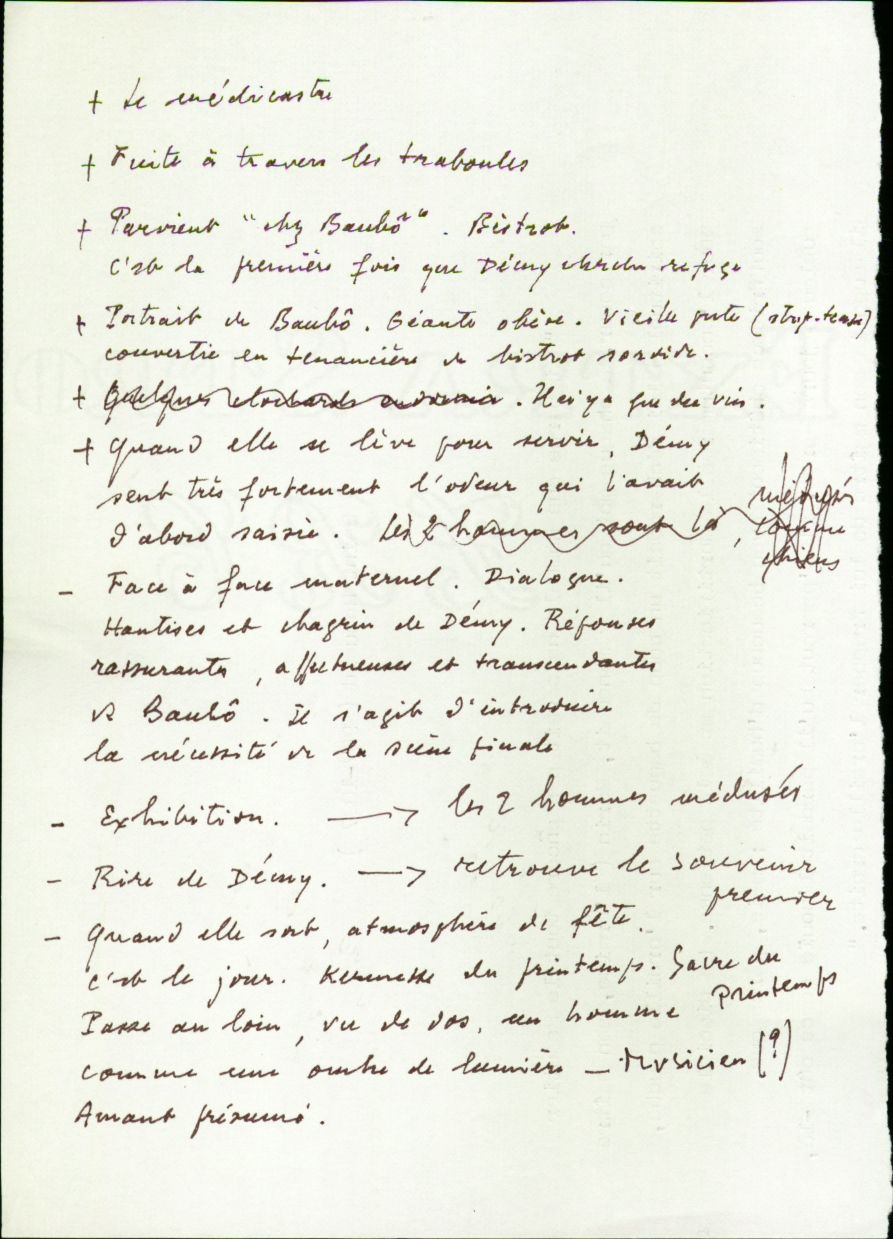 + Le médicastre
+ Fuite à travers les traboules
+ Parvient "chez Baubô". Bistrot.
C'est la première fois que Démy cherche refuge
+ Portrait de Baubô. Géante obèse. Vieille pute (strip-tease)
convertie en tenancière de bistrot sordide.
+ Quelques clochards endormis. Il n'y a que du vin.
+ Quand elle se lève pour servir, Démy
sent très fortement l'odeur qui l'avait
d'abord saisie. Les 2 hommes sont là, médusés
comme
chiens
- Face à face maternel. Dialogue.
Hantises et chagrin de Démy. Réponses
rassurantes, affectueuses et transcendantes
de Baubô. Il s'agit d'introduire
la nécessité de la scène finale
- Exhibition. → les 2 hommes médusés
- Rire de Démy. → retrouve le souvenir
premier
- Quand elle sort, atmosphère de fête.
C'est le jour. Kermesse du printemps. Sacre du
Printemps
Passe au loin, vu de dos, un homme
comme une ombre de lumière - Musicien (?)
Amant présumé.